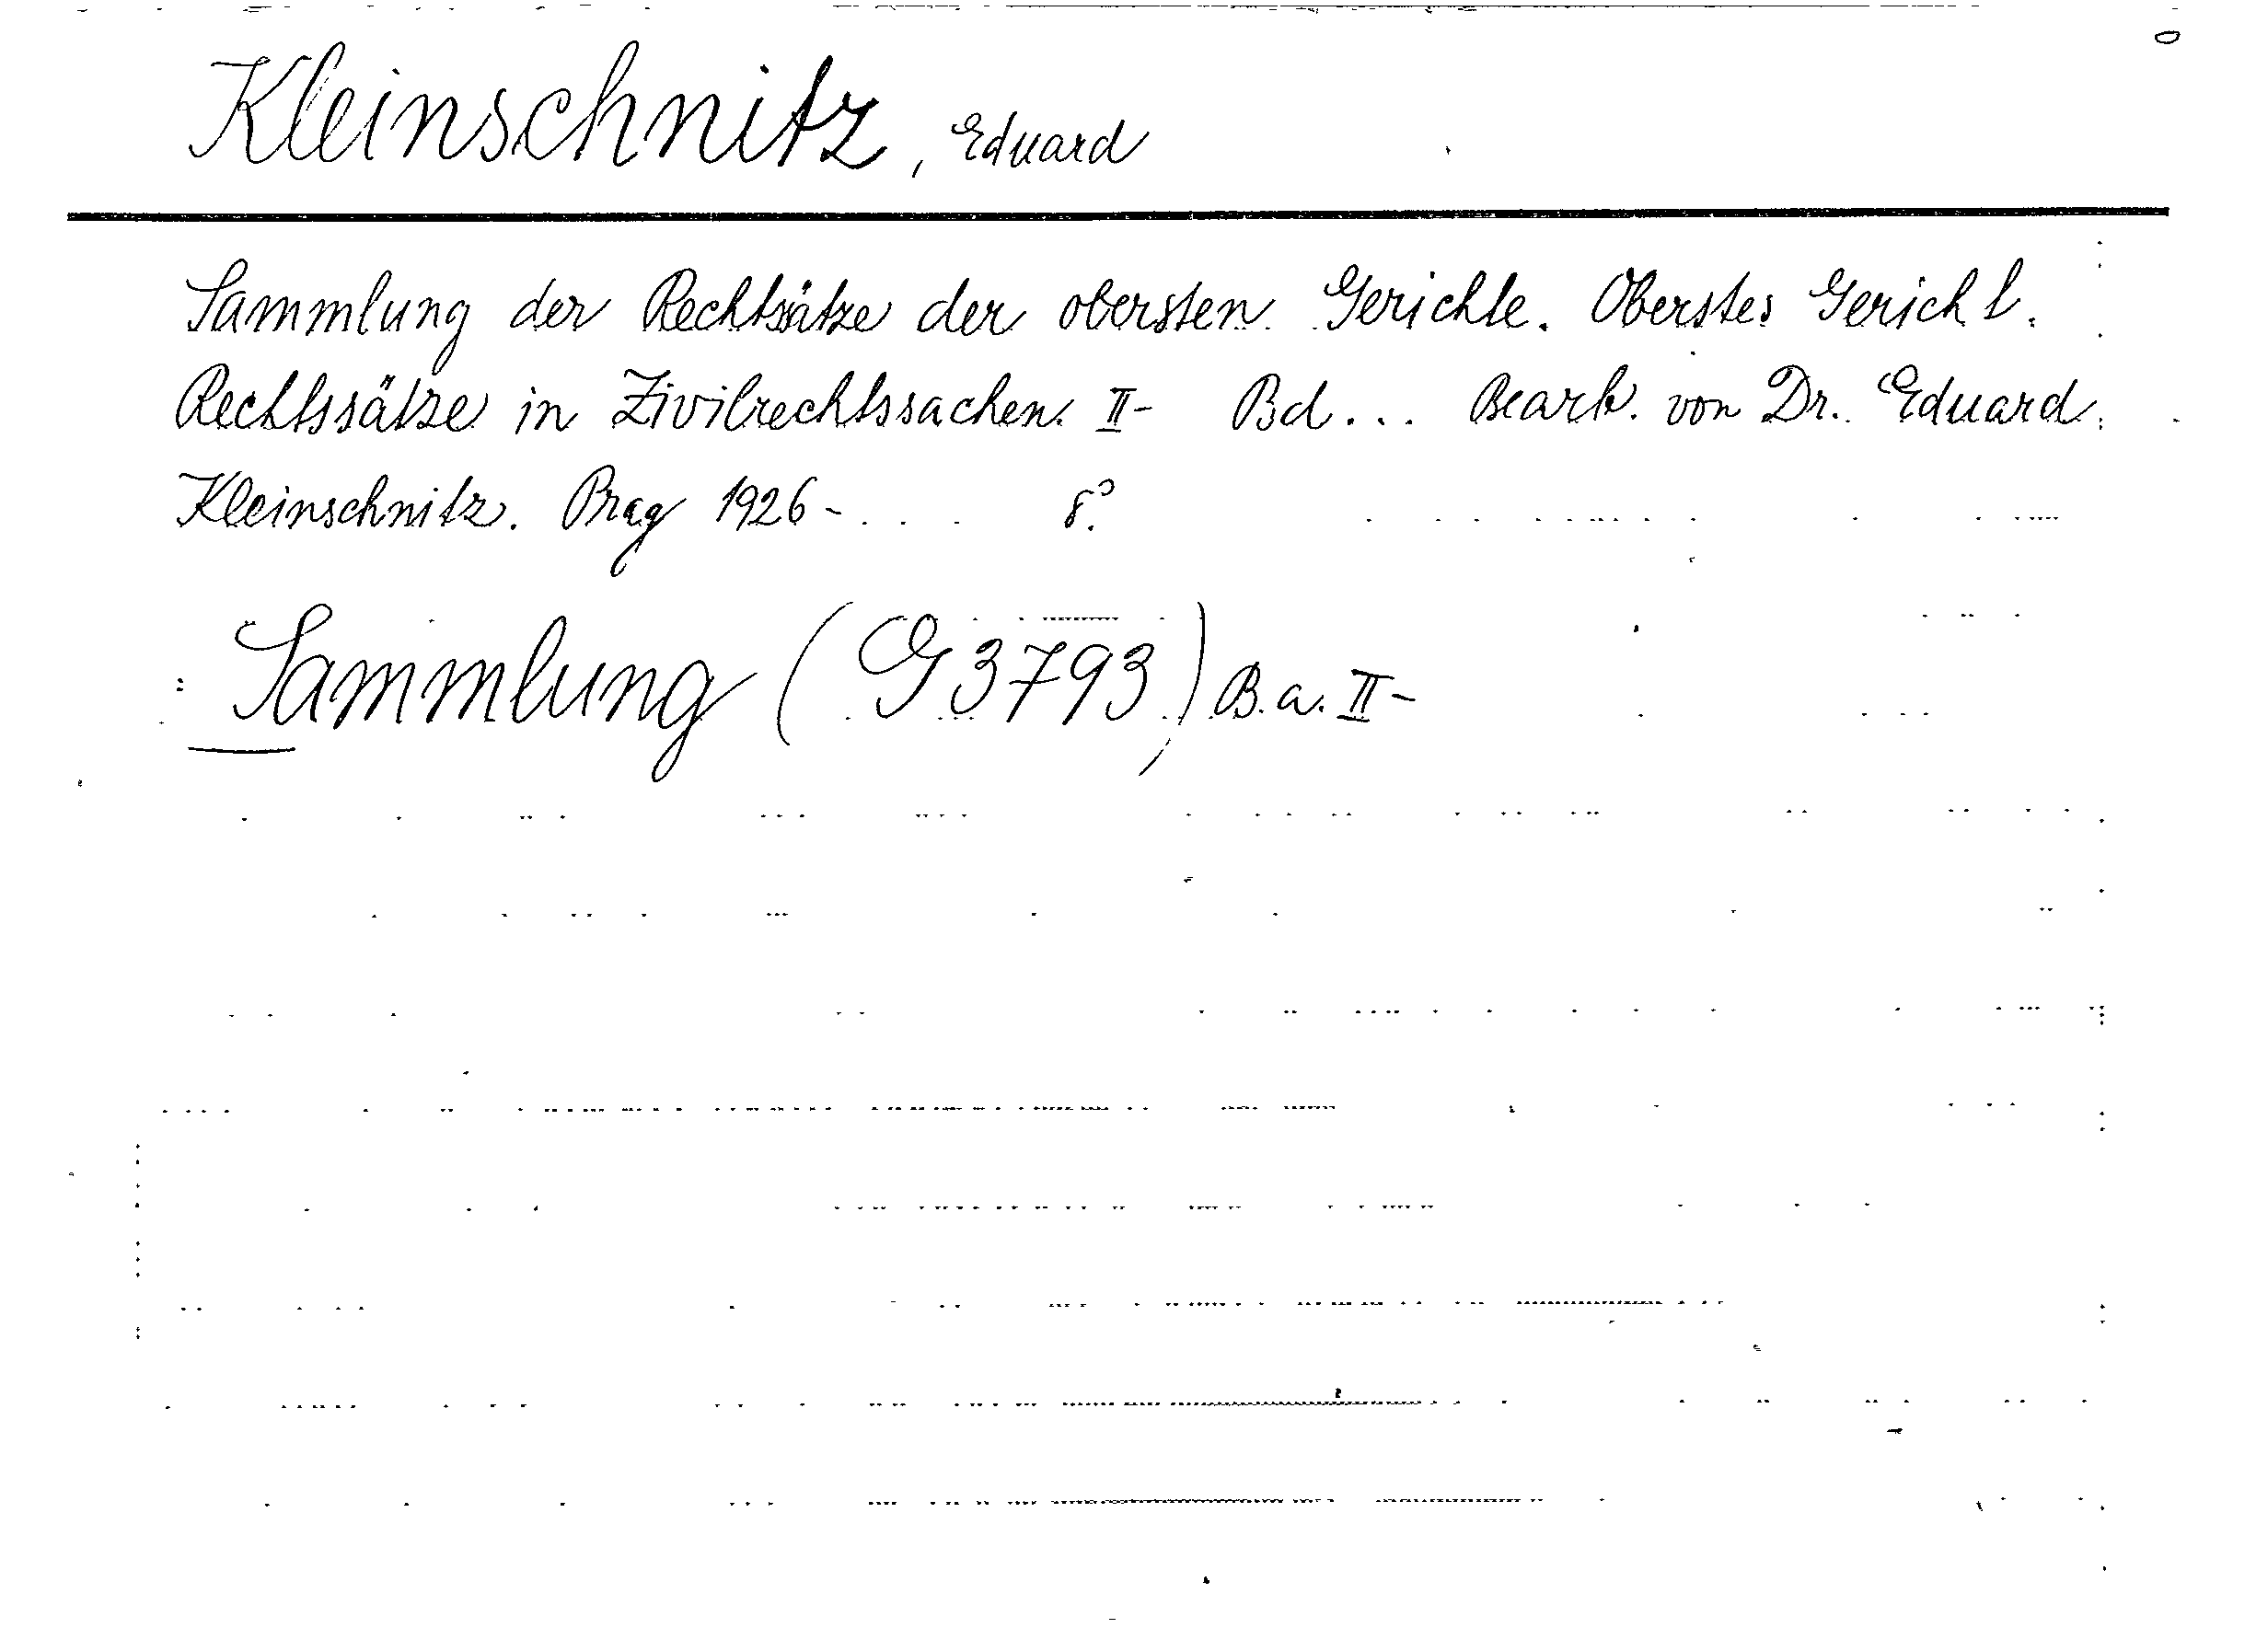 Kleinschnitz, Eduard
Sammlung der Rechtssätze der obersten Gerichte. Oberstes Gericht.
Rechtssätze in Zivilrechtssachen. II- Bd... Bearb. von Dr. Eduard
Kleinschnitz. Prag 1926- . . . 8°.
: Sammlung (G 3793) B.a. II-